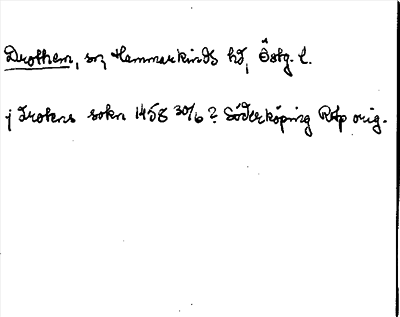 Drothem, sn, Hammarkinds hd, Östg. l.
j Drotens sokn 1458 30/6 ? Söderköping RAp orig.